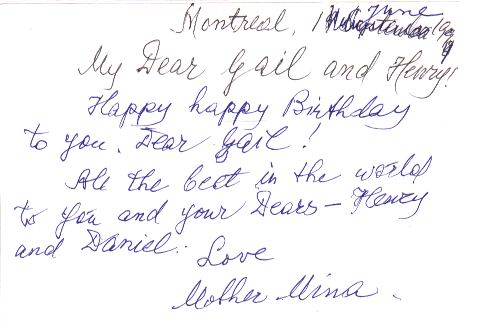 Montreal, 1 June 199
My Dear Gail and Henry!
Happy happy Birthday
to you. Dear Gail!
All the best in the world
to you and your Dears — Henry
and Daniel.
Love
Mother Mina.